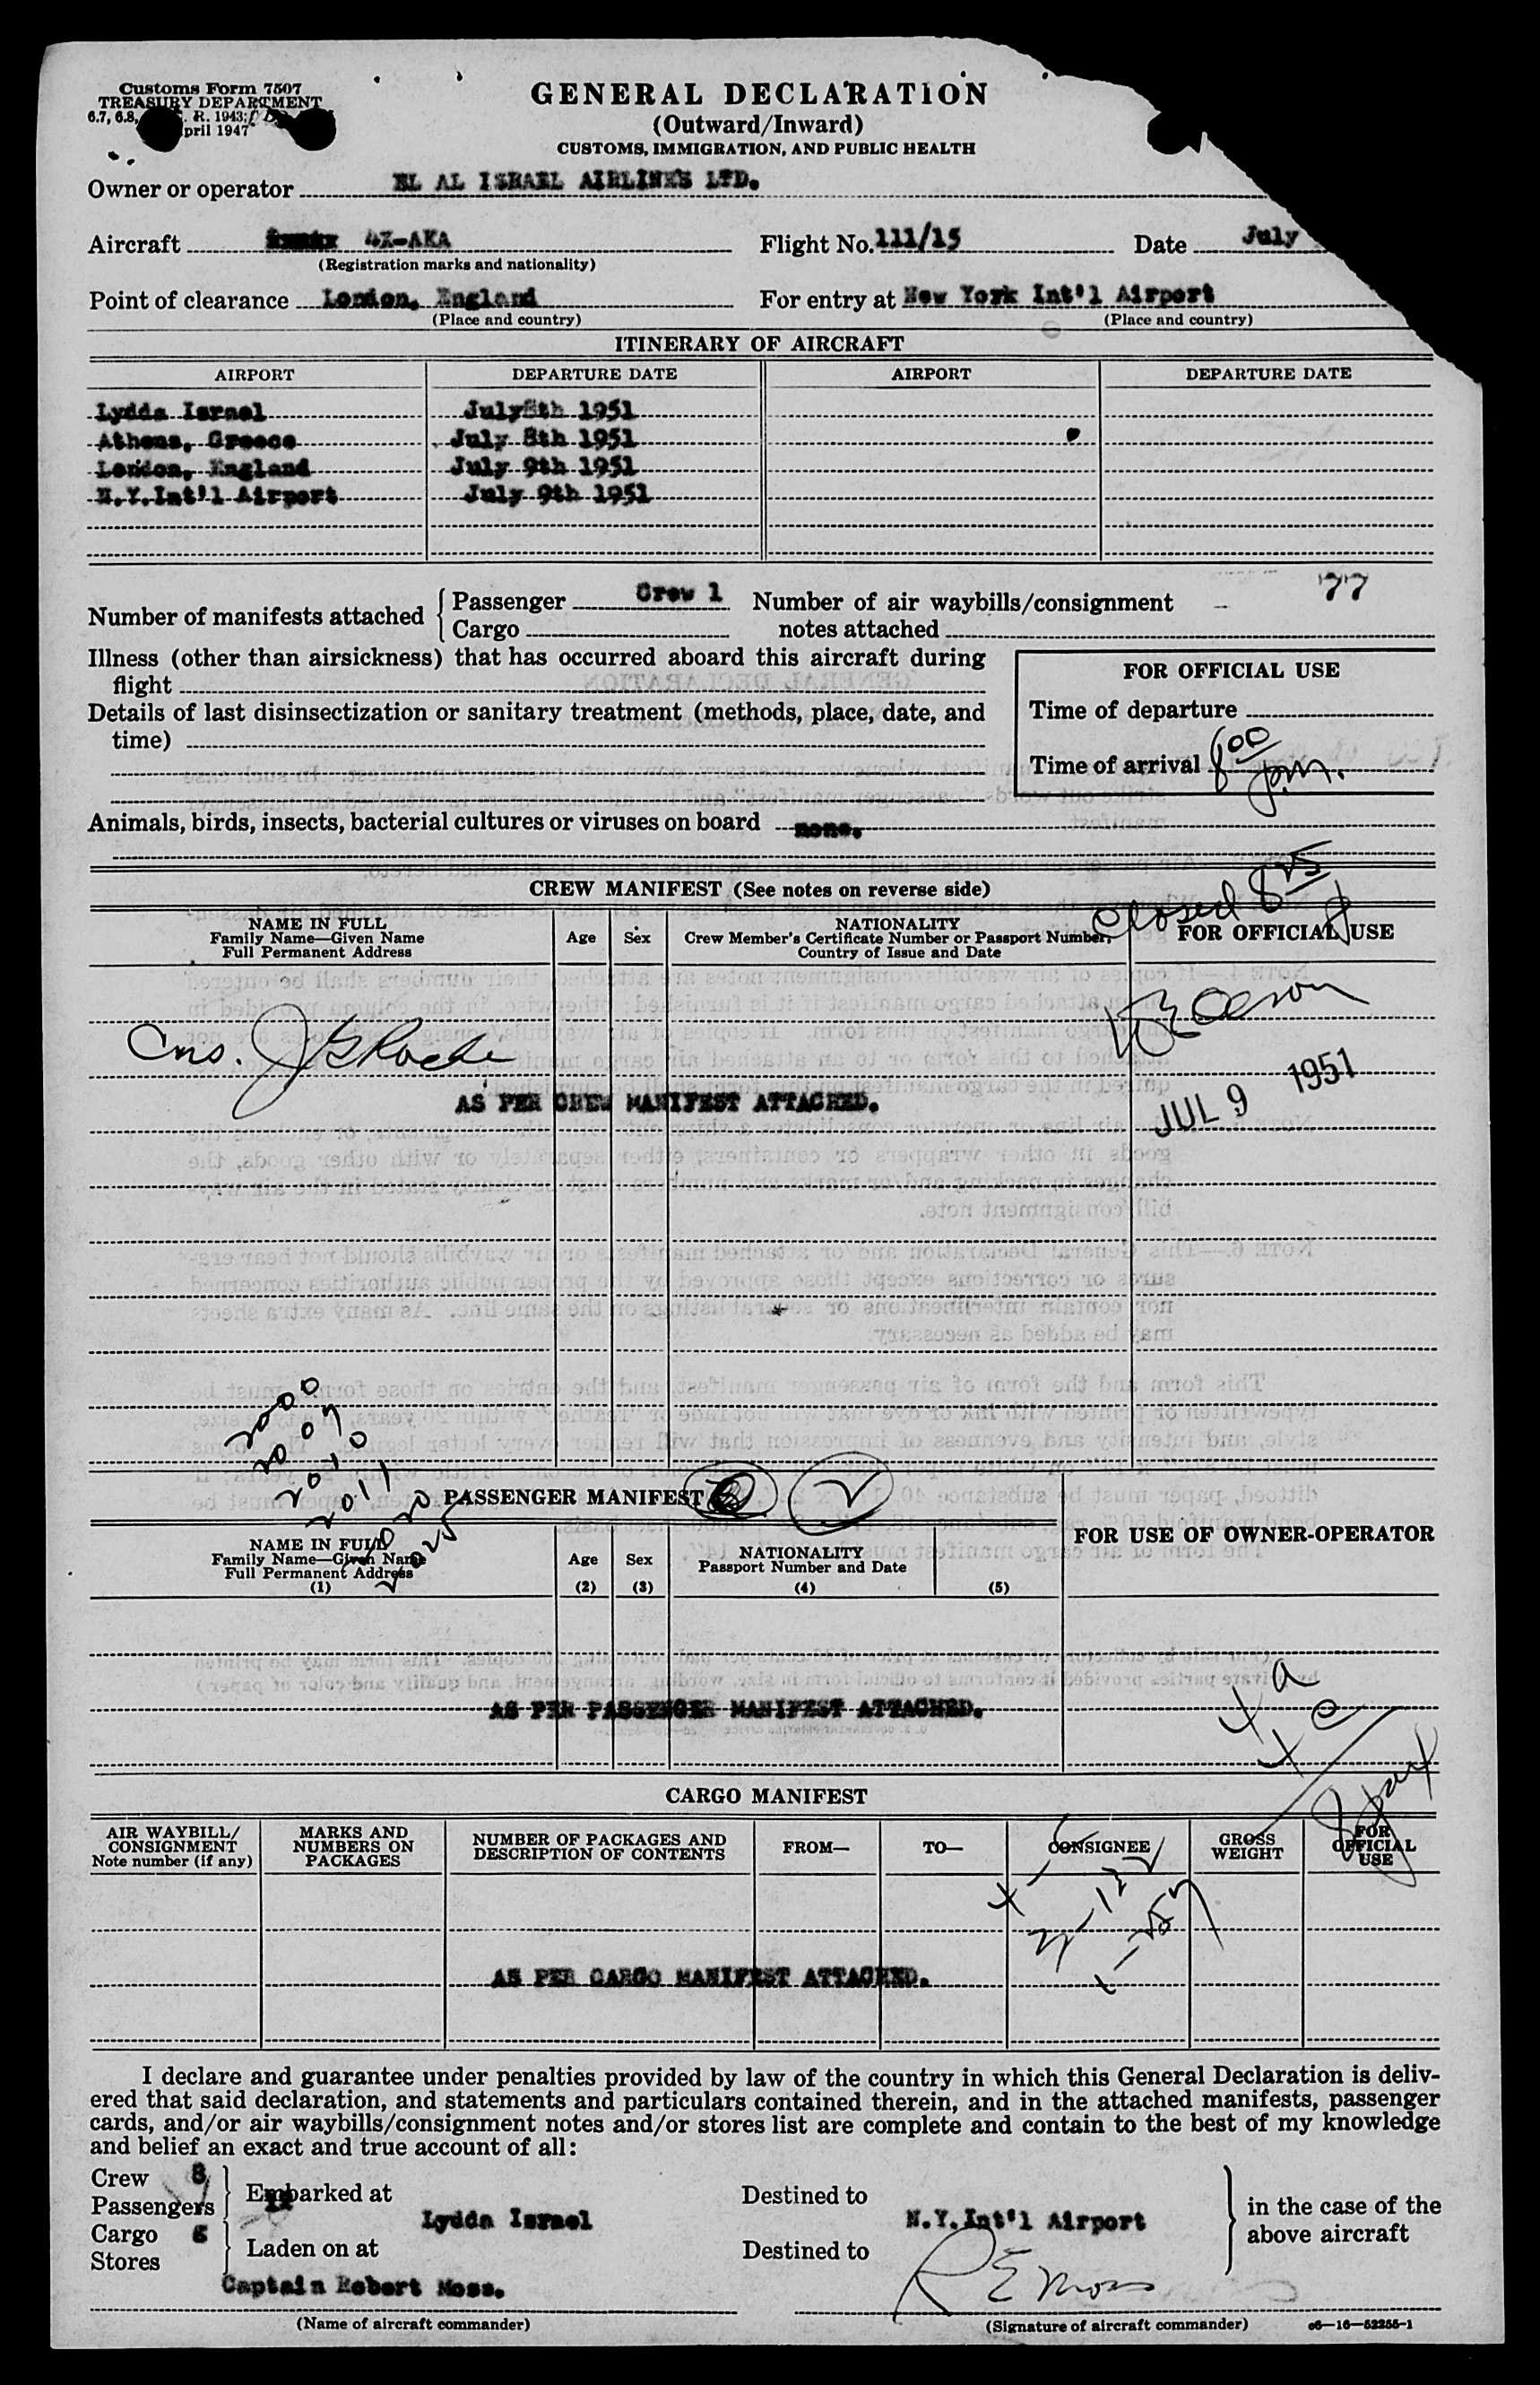 Customs Form 7507
TREASURY DEPARTMENT
6.7, 6.8, R. 1943;
pril 1947
GENERAL DECLARATION
(Outward/Inward)
CUSTOMS, IMMIGRATION, AND PUBLIC HEALTH
Owner or operator EL AL ISRAEL AIRLINES LTD.
Aircraft 4X-AKA Flight No. 111/15 Date July
(Registration marks and nationality)
Point of clearance London, England For entry at New York Int'l Airport
(Place and country) (Place and country)
ITINERARY OF AIRCRAFT
AIRPORT DEPARTURE DATE AIRPORT DEPARTURE DATE
Lydda Israel July 8th 1951
Athens, Greece July 8th 1951
London, England July 9th 1951
N.Y.Int'l Airport July 9th 1951
77
Number of manifests attached Passenger Crew 1 Number of air waybills/consignment
Cargo notes attached
Illness (other than airsickness) that has occurred aboard this aircraft during
flight
Details of last disinsectization or sanitary treatment (methods, place, date, and
time)
FOR OFFICIAL USE
Time of departure
Time of arrival 8 00 p.m.
Animals, birds, insects, bacterial cultures or viruses on board none.
CREW MANIFEST (See notes on reverse side)
Closed 8 25
NAME IN FULL
Family Name—Given Name
Full Permanent Address
Age Sex
NATIONALITY
Crew Member's Certificate Number or Passport Number,
Country of Issue and Date
FOR OFFICIAL USE
Cns.
JUL 9 1951
AS PER CREW MANIFEST ATTACHED.
2000
2007
2010
2011
2025
PASSENGER MANIFEST 2
NAME IN FULL
Family Name—Given Name
Full Permanent Address
(1)
Age
(2)
Sex
(3)
NATIONALITY
Passport Number and Date
(4) (5)
FOR USE OF OWNER-OPERATOR
AS PER PASSENGER MANIFEST ATTACHED.
4 a
4 c
CARGO MANIFEST
AIR WAYBILL/
CONSIGNMENT
Note number (if any)
MARKS AND
NUMBERS ON
PACKAGES
NUMBER OF PACKAGES AND
DESCRIPTION OF CONTENTS
FROM— TO— CONSIGNEE
GROSS
WEIGHT
FOR
OFFICIAL
USE
AS PER CARGO MANIFEST ATTACHED.
I declare and guarantee under penalties provided by law of the country in which this General Declaration is deliv-
ered that said declaration, and statements and particulars contained therein, and in the attached manifests, passenger
cards, and/or air waybills/consignment notes and/or stores list are complete and contain to the best of my knowledge
and belief an exact and true account of all:
Crew 8
Passengers Embarked at Lydda Israel Destined to N.Y.Int'l Airport
Cargo
Stores Laden on at Destined to
in the case of the
above aircraft
Captain Robert Moss. R E Moss
(Name of aircraft commander) (Signature of aircraft commander) c6—16—52255-1